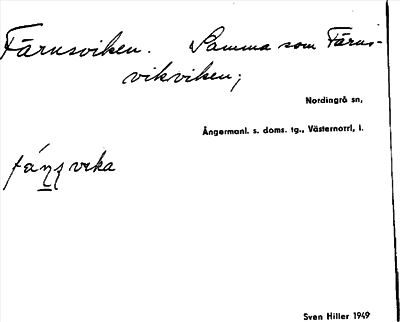 Tärnsviken. Samma som Tärns-
vikviken;
Nordingrå sn,
Ångermanl. s. doms. tg., Västernorrl, l.
vika
Sven Hiller 1949